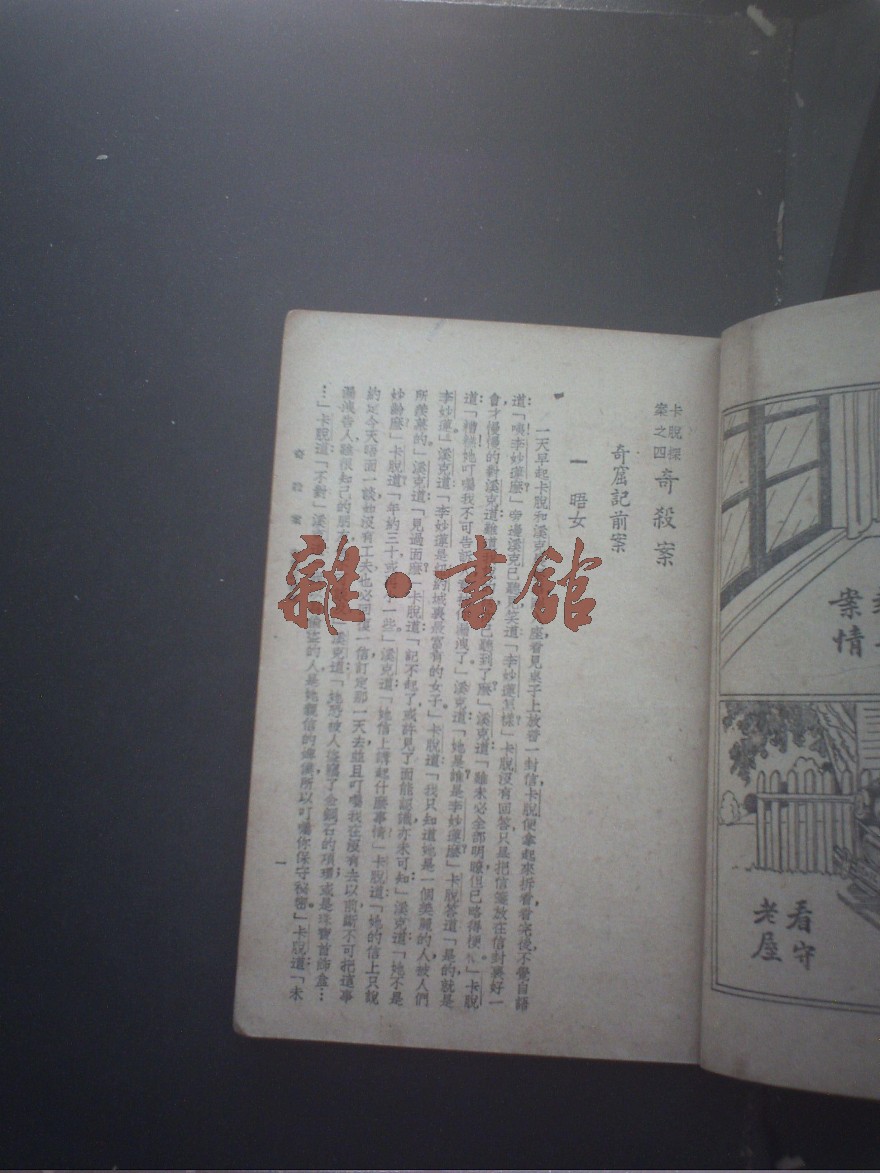 卡脫探案之四 奇殺案
奇窟記前案
一 晤女
一天早起卡脫和溪克 座看見桌子上放着一封信卡脫便拿起來拆看看完後不覺自語
道「噢李妙蓮麽」旁邊溪克已聽見笑道「李妙蓮怎樣」卡脫沒有回答只是把信箋放在信封裏好一
會才慢慢的對溪克道 已聽到了麽」溪克道「雖未必全部明瞭但已略得梗 」卡脫
道「 她叮囑我不可告訴 洩了」溪克道「她是誰是李妙蓮麽」卡脫答道「是的就是
李妙蓮」溪克道「李妙蓮是紐約城裏最富有的女子」卡脫道「我只知道她是一個美麗的人被人們
所羨慕的」溪克道「見過面麽」卡脫道「記不起了或許見了面能認識亦未可知」溪克道「她不是
妙齡麽」卡脫道「年約三十或 一些」溪克道「她信上講起什麽事情」卡脫道「她的信上只說
約定今天晤面一談她沒有工夫也必 一信訂定那一天去並且叮囑我在沒有去以前斷不可把這事
漏洩告人雖很知己的朋友 溪克道「她恐被人盜竊了金鋼石的項 或是珠寶首飾盒…
…」卡脫道「不對」溪克 盜的人是她親信的 所以叮囑你保守秘密」卡脫道「未
奇殺案
一
雜·書館
案情
看守老屋